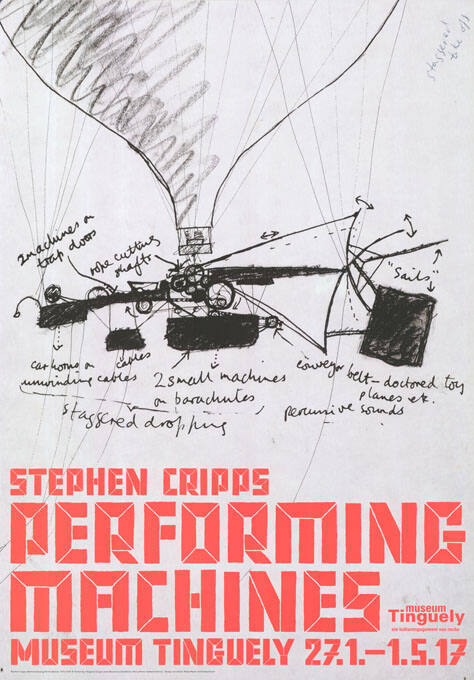 staggered
take off
2 machines on
trap doors
rope cutting
shafts
"Sails"
car horns on
unwinding cables
cables
2 small machines
on barachutes
staggered dropping
conveyor belt – doctored toy
planes etc.
percussive sounds
STEPHEN CRIPPS
PERFORMING
MACHINES
museum
Tinguely
ein kulturengagement von roche
MUSEUM TINGUELY 27.1.–1.5.17